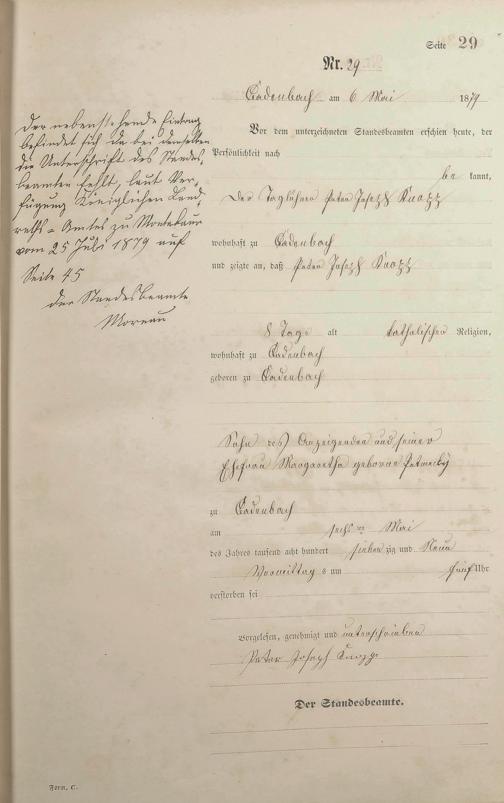 Seite 29
Nr. 29
Cadenbach am 6 Mai 1879
Vor dem unterzeichneten Standesbeamten erschien heute, der
Persönlichkeit nach
be kannt,
Der Taglöhner Peter Joseph Knopp
wohnhaft zu Cadenbach
und zeigte an, daß Peter Joseph Knopp
8 Tage alt katholischer Religion,
wohnhaft zu Cadenbach
geboren zu Cadenbach
Sohn des Anzeigenden und seiner
Ehefrau Margaretha geborne
zu Cadenbach
am sechs ten Mai
des Jahres tausend acht hundert sieben zig und Neun
Vormittag s um fünf Uhr
verstorben sei
Vorgelesen, genehmigt und unterschrieben
Peter Joseph Knopp
Der Standesbeamte.
Der nebenstehende Eintrag
befindet sich da bei demselben
die Unterschrift des Standes-
beamten fehlt, laut Ver-
fügung Königlichen Land-
raths-Amtes zu Montabaur
vom 25 Juli 1879 auf
Seite 45
der Standesbeamte
Moreau
Form. C.